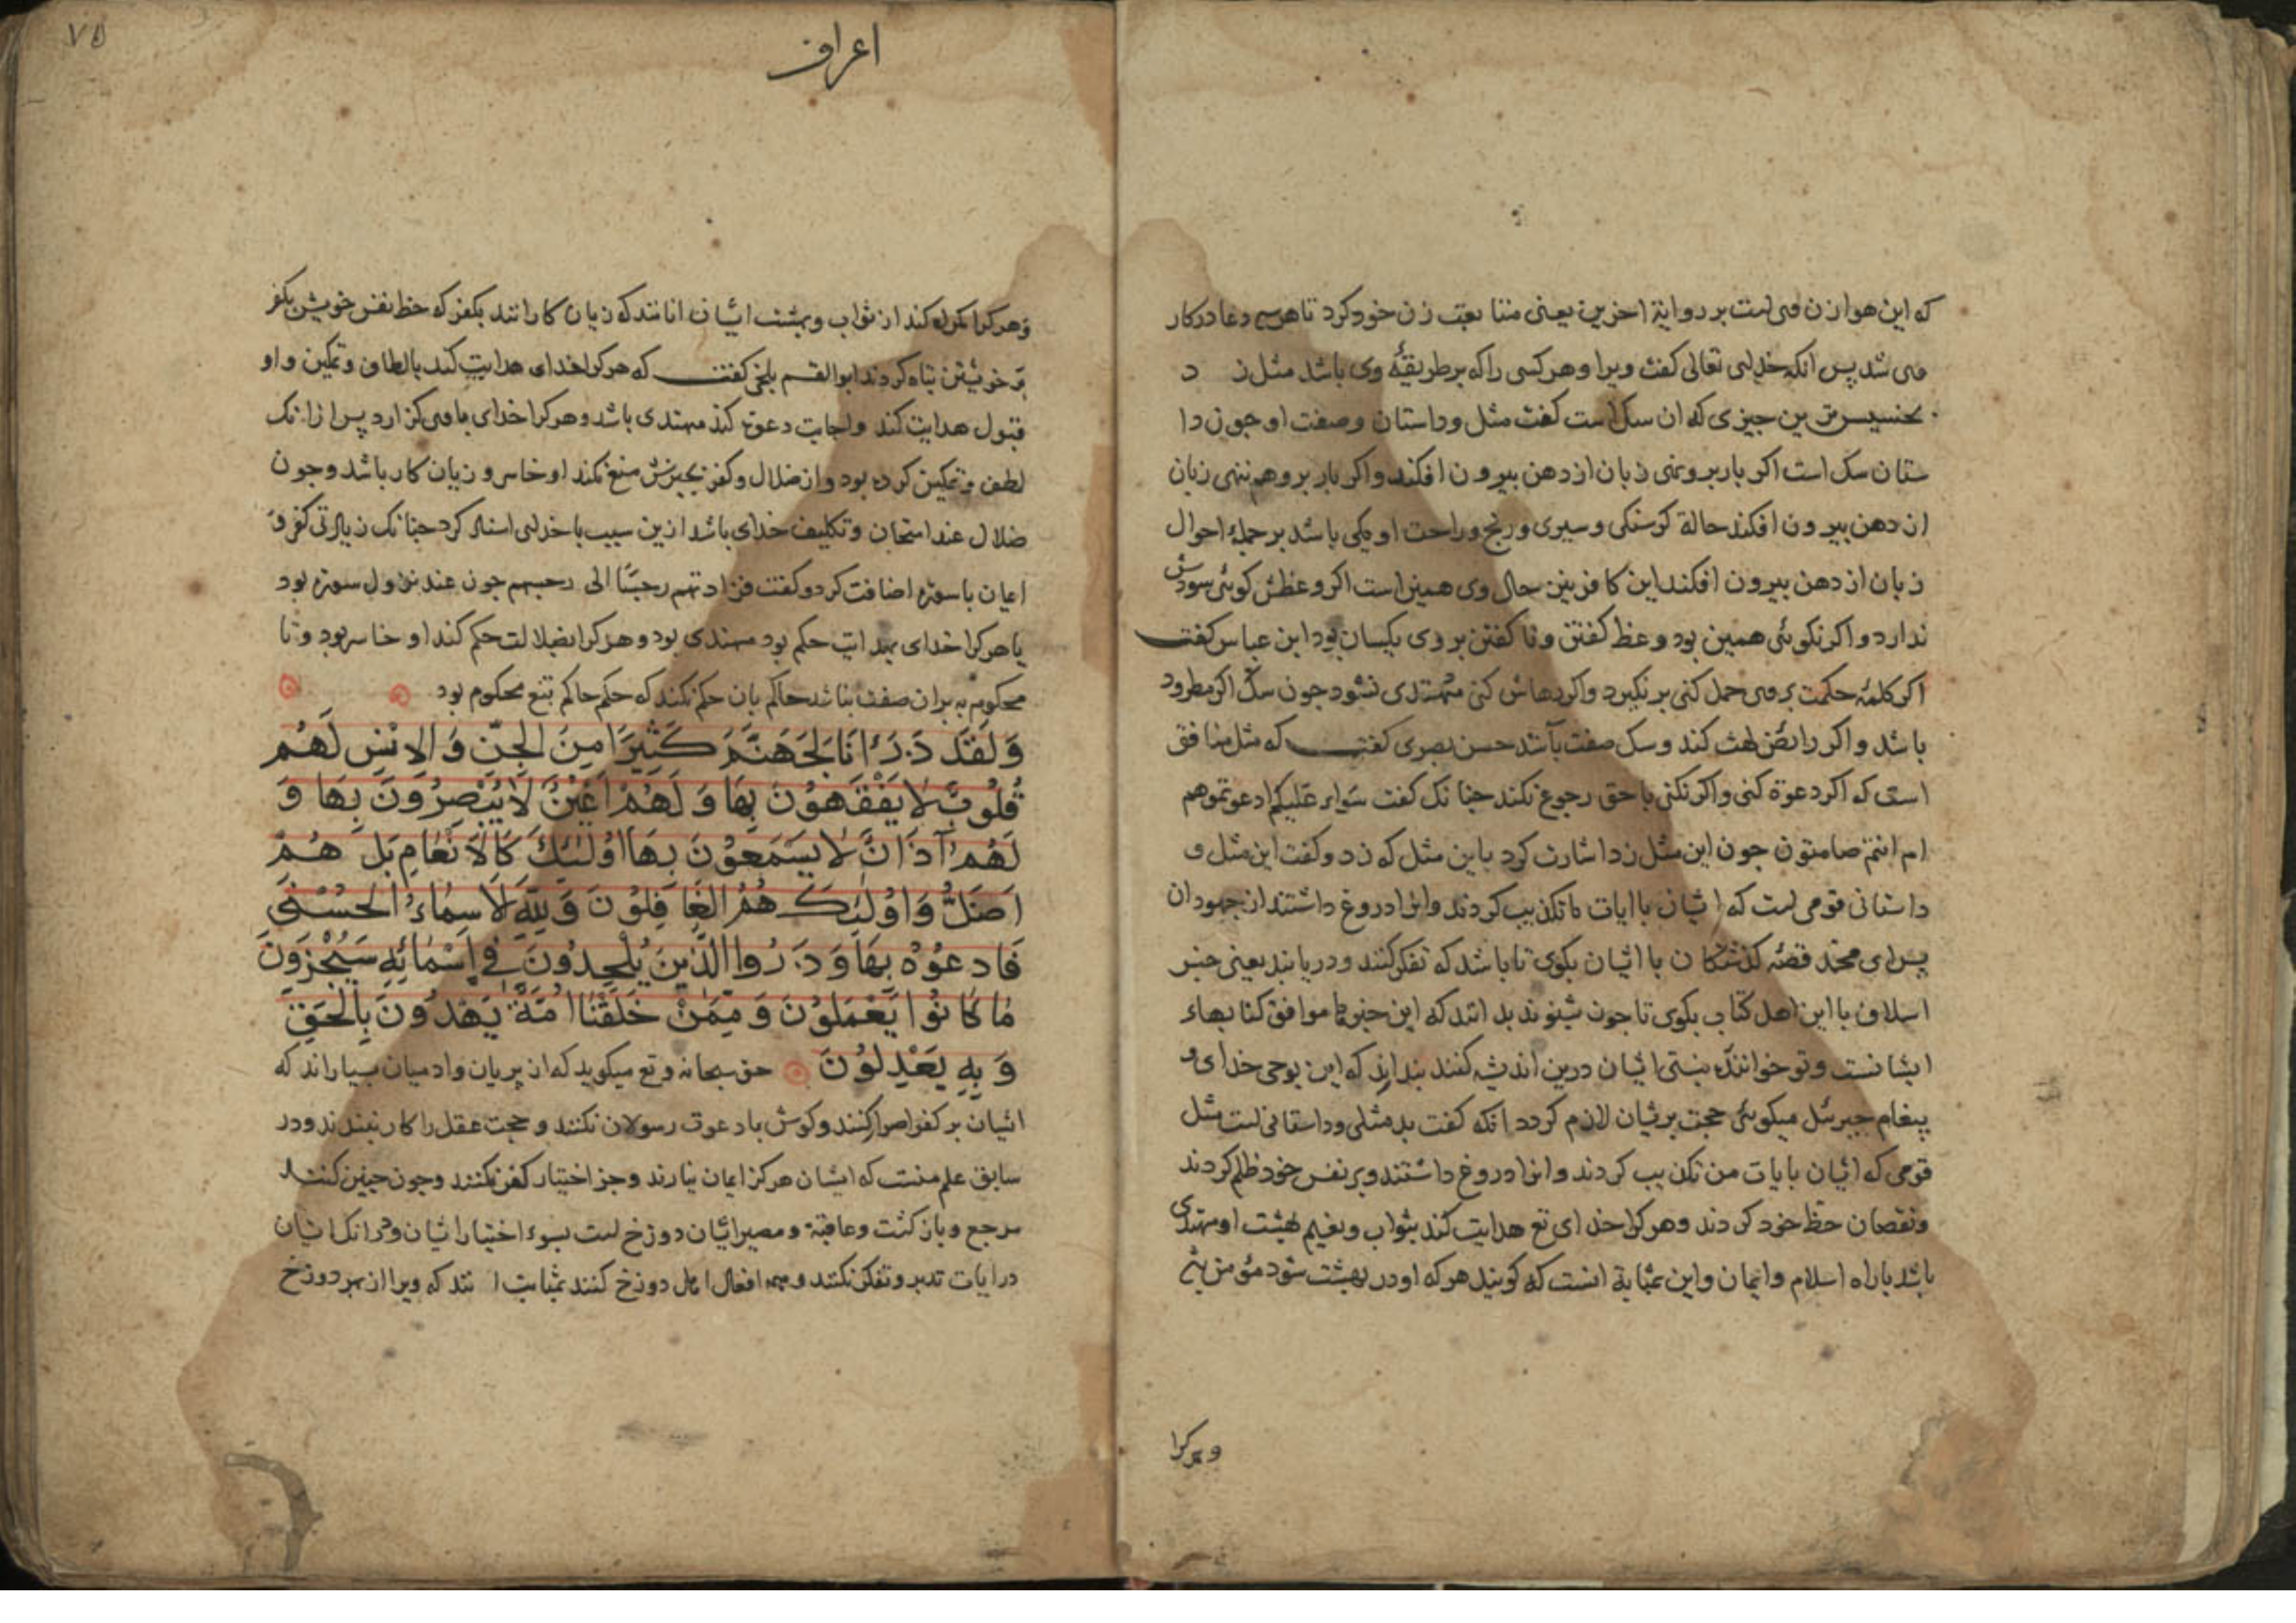 که این هوا زن وی است بر روایة اخرین یعنی متابعت زن خود کرد تا دعا در کار
می شد پس انکه خدای تعالی کفت ویرا و هر کسی را که بر طریقهٔ وی باشد مثل ز د
بخسیس ترین جیزی که ان سک است کفت مثل و داستان و صفت او جون دا
ستان سک است اکر بار برو نهی زبان از دهن بیرون افکند و اکر بار برو هم ننهی زبان
از دهن بیرون افکند حالة کرسنکی و سیری و رنج و راحت او یکی باشد بر جملهٔ احوال
زبان از دهن بیرون افکند این کافر نیز حال وی همین است اکر وعظش کوئی سودش
ندارد و اکر نکوئی همین بود وعظ کفتن و نا کفتن بر وی یکسان بود ابن عباس کفت
اکر کلمهٔ حکمت بر وی حمل کنی بر نکیرد و اکر رهاش کنی مهتدی نشود جون سک اکر مطرود
باشد و اکر رابض لهث کند و سک صفت باشد حسن بصری کفت که مثل منافق
است که اکر دعوة کنی و اکر نکنی با حق رجوع نکند جنانک کفت سواء علیکم ادعوتموهم
ام انتم صامتون جون این مثل زد اشارت کرد باین مثل که زد و کفت این مثل و
داستانی قومی است که ایشان با ایات ما تکذیب کردند و انرا دروغ داشتند از جهودان
پس ای محمد قصهٔ کذشتکان با ایشان بکوی تا باشد که تفکر کنند و دریابند یعنی خبر
اسلاف با این اهل کتاب بکوی تا جون شنوند بدانند که این خبرها موافق کتابهاء
ایشانست و تو خواننده نیستی ایشان درین اندیشه کنند بدانند که این بوحی خدای و
پیغام جبرئیل میکوئی حجت بریشان لازم کردد انکه کفت بد مثلی و داستانی است مثل
قومی که ایشان بایات من تکذیب کردند و انرا دروغ داشتند و بر نفس خود ظلم کردند
و نقصان حظ خود کردند و هر کرا خدای تع هدایت کند بثواب و نعیم بهشت او مهتدی
باشد با راه اسلام و ایمان و این بمثابة انست که کویند هر که او در بهشت شود مؤمن
و هر کرا
اعراف
۷۵
و هر کرا کمراه کند از ثواب و بهشت ایشان انانند که زیان کارانند بکفر که حظ نفس خویش بکفر
بر خویشتن تباه کردند ابوالقسم بلخی کفت که هر کرا خدای هدایت کند بالطاف و تمکین و او
قبول هدایت کند و اجابت دعوت کند مهتدی باشد و هر کرا خدای با وی کذارد پس از انک
لطف و تمکین کرده بود و از ضلال و کفر بجبرش منع نکند او خاسر و زیان کار باشد و جون
ضلال عند امتحان و تکلیف خدای باشد ازین سبب با خدای اسناد کرد جنانک زیادتی کفر و
ایمان با سوره اضافت کرد و کفت فزادتهم رجسا الی رجسهم جون عند نزول سوره بود
یا هر کرا خدای بهدایت حکم بود مهتدی بود و هر کرا بضلالت حکم کند او خاسر بود و تا
محکوم به بران صفت نباشد حاکم بان حکم نکند که حکم حاکم تبع محکوم بود
وَلَقَدْ ذَرَأْنَا لِجَهَنَّمَ كَثِيرًا مِنَ الْجِنِّ وَ الْاِنْسِ لَهُمْ
قُلُوبٌ لَا يَفْقَهُونَ بِهَا وَ لَهُمْ اَعْيُنٌ لَا يُبْصِرُونَ بِهَا وَ
لَهُمْ آذَانٌ لَا يَسْمَعُونَ بِهَا اُولٰئِكَ كَالْاَنْعَامِ بَلْ هُمْ
اَضَلُّ وَ اُولٰئِكَ هُمُ الْغَافِلُونَ وَ لِلّٰهِ الْاَسْمَاءُ الْحُسْنٰى
فَادْعُوهُ بِهَا وَ ذَرُوا الَّذِينَ يُلْحِدُونَ فِي اَسْمَائِهِ سَيُجْزَوْنَ
مَا كَانُوا يَعْمَلُونَ وَ مِمَّنْ خَلَقْنَا اُمَّةٌ يَهْدُونَ بِالْحَقِّ
وَ بِهِ يَعْدِلُونَ حق سبحانه و تع میکوید که از پریان و ادمیان بسیاراند که
ایشان بر کفر اصرار کنند و کوش با دعوت رسولان نکنند و حجت عقل را کار نبندند و در
سابق علم منست که ایشان هرکز ایمان نیارند و جز اختیار کفر نکنند و جون جنین کنند
مرجع و بازکشت و عاقبة و مصیر ایشان دوزخ است بسوء اختیار ایشان و هر انک ایشان
در ایات تدبر و تفکر نکنند و همه افعال اهل دوزخ کنند بمثابت ا نند که ویرا از بهر دوزخ